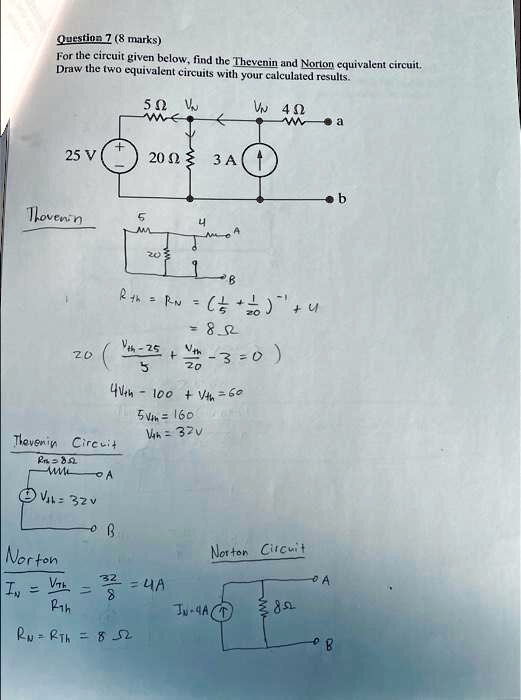 Question 7 (8 marks)
For the circuit given below, find the Thevenin and Norton equivalent circuit.
Draw the two equivalent circuits with your calculated results.
5 Ω VN VN 4 Ω
a
25 V + − 20 Ω 3 A
b
Thovenin
5 4
A
20
B
Rth = RN = (1/5 + 1/20)⁻¹ + 4
= 8 Ω
20 ( Vth - 25 / 5 + Vth / 20 - 3 = 0 )
4Vth - 100 + Vth = 60
5Vth = 160
Vth = 32V
Thevenin Circuit
Rth = 8Ω
A
Vth = 32 v
B
Norton
IN = VTh / RTh = 32 / 8 = 4A
RN = RTh = 8 Ω
Norton Circuit
A
IN=4A 8Ω
B